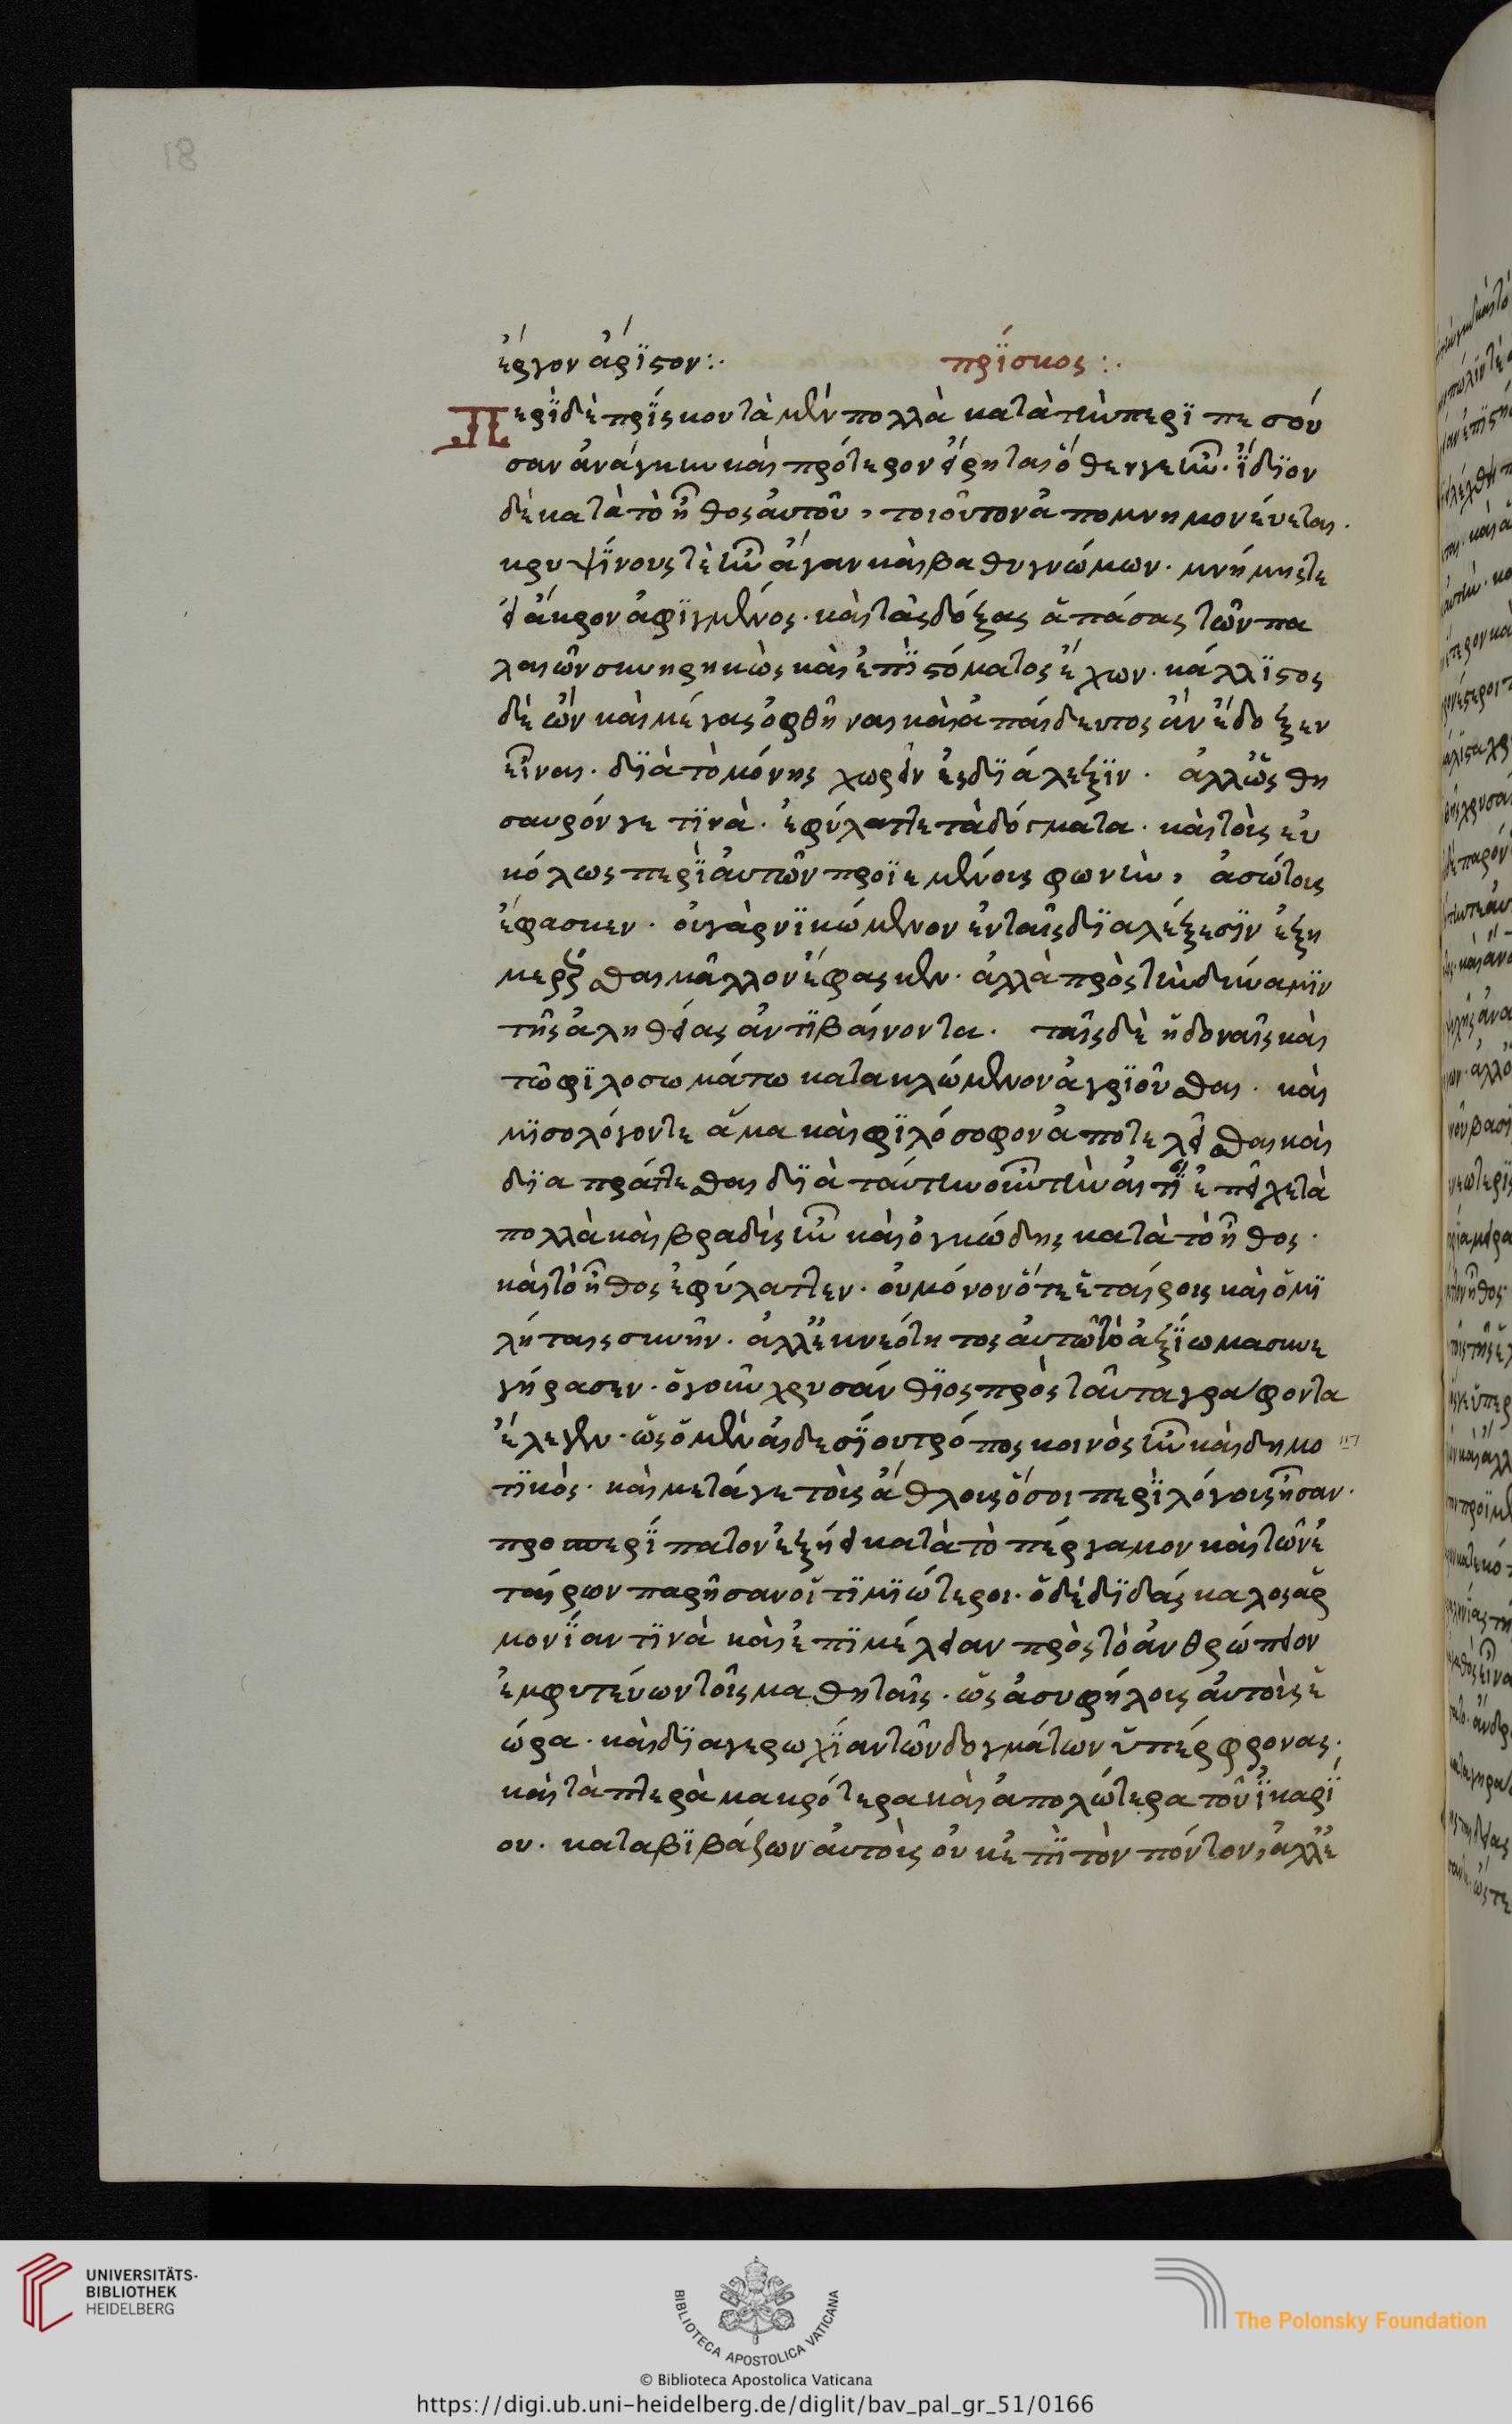 18
ἔργον ἄριστον:. πρίσκος:.
Περὶ δὲ πρίσκου τὰ μὲν πολλὰ κατὰ τὴν περιπεσοῦ
σαν ἀνάγκην καὶ πρότερον εἴρηται ὅθεν γε ἦν. ἴδιον
δὲ κατὰ τὸ ἦθος αὐτοῦ, τοιοῦτον ἀπομνημονεύεται.
κρυψίνους τὲ ἦν ἄγαν καὶ βαθυγνώμων. μνήμης τε
εἰ ἄκρον ἀφιγμένος. καὶ τὰς δόξας ἁπάσας τῶν πα
λαιῶν συνῃρηκὼς καὶ ἐπὶ στόματος ἔχων. κάλλιστος
δὲ ὢν καὶ μέγας ὀφθῆναι καὶ ἀπαίδευτος ἂν ἔδοξεν
εἶναι. διὰ τὸ μόγις χωρεῖν ἐς διάλεξιν. ἀλλ' ὡς θη
σαυρόν γε τινὰ. ἐφύλαττε τὰ δόγματα. καὶ τοὺς εὐ
κόλως περὶ αὐτῶν προϊεμένοις φωνὴν, ἀσώτοις
ἔφασκεν. οὐ γὰρ νικώμενον ἐν ταῖς διαλέξεσιν ἐξη
μεροῦσθαι μᾶλλον ἔφασκεν. ἀλλὰ πρὸς τὴν δύναμιν
τῆς ἀληθείας ἀντιβαίνοντα. ταῖς δὲ ἡδοναῖς καὶ
τῶ φιλοσωμάτω κατακλώμενον ἀγριοῦσθαι. καὶ
μισολόγον τε ἅμα καὶ φιλόσοφον ἀποτελεῖσθαι καὶ
διαπράττεσθαι διὰ ταύτην οὖν τὴν αἰτί ἐπεῖχε τὰ
πολλὰ καὶ βραδὺς ἦν καὶ ὀγκώδης κατὰ τὸ ἦθος.
καὶ τὸ ἦθος ἐφύλαττεν. οὐ μόνον ὅτε ἑταίροις καὶ ὁμι
ληταῖς συνῆν. ἀλλ' ἐκ νεότητος αὐτῶ τὸ ἀξίωμα συνε
γήρασεν. ὁ γοῦν χρυσάνθιος πρὸς ταῦτα γράφοντα
ἔλεγεν. ὡς ὁ μὲν αἰδεσίου τρόπος κοινὸς ἦν καὶ δημο
τικὸς. καὶ μετά γε τοὺς ἄθλοις ὅσοι περὶ λόγοις ἦσαν.
προπερίπατον ἐξῄει κατὰ τὸ πέργαμον καὶ τῶν ἑ
ταίρων παρῆσαν οἱ τιμιώτεροι. ὁ δὲ διδάσκαλος ἁρ
μονίαν τινὰ καὶ ἐπιμέλειαν πρὸς τὸ ἀνθρώπειον
ἐμφυτεύων τοῖς μαθηταῖς. ὡς ἀσυφήλοις αὐτοὺς ἑ
ώρα. καὶ διαγερωχίαν τῶν δογμάτων ὑπέρφρονας.
καὶ τὰ πτερὰ μακρότερα καὶ ἀπολώτερα τοῦ ἰκαρί
ου. καταβιβάζων αὐτοὺς οὐκ ἐπὶ τὸν πόντον, ἀλλ' ἐ
UNIVERSITÄTS-
BIBLIOTHEK
HEIDELBERG
BIBLIOTECA APOSTOLICA VATICANA
The Polonsky Foundation
© Biblioteca Apostolica Vaticana
https://digi.ub.uni-heidelberg.de/diglit/bav_pal_gr_51/0166